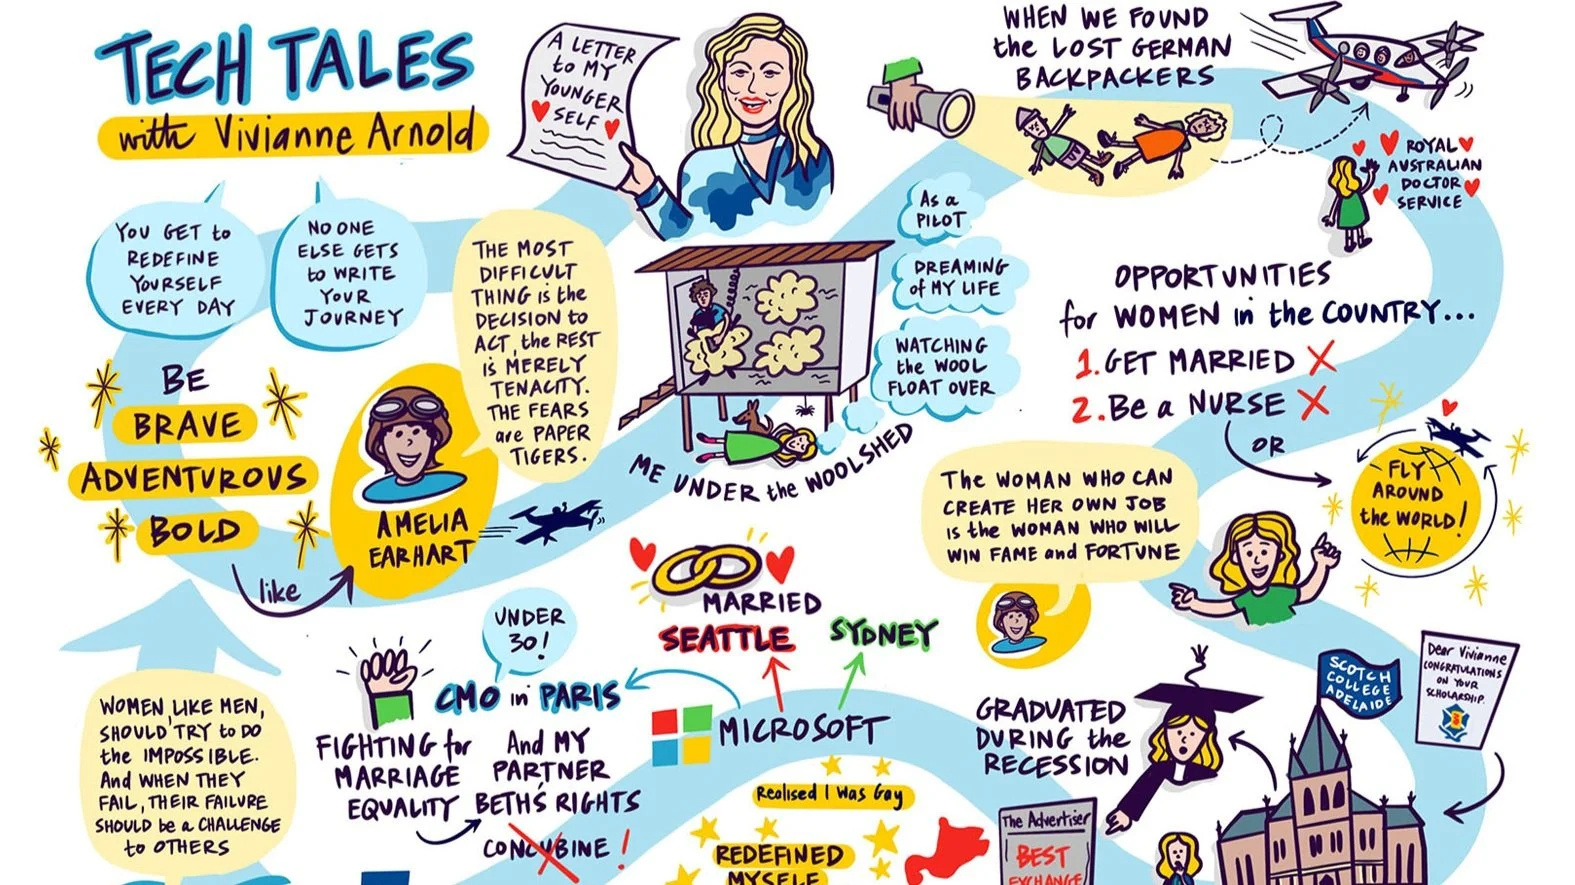 TECH TALES
with Vivianne Arnold
A LETTER
to MY
YOUNGER
SELF
WHEN WE FOUND
the LOST GERMAN
BACKPACKERS
ROYAL
AUSTRALIAN
DOCTOR
SERVICE
YOU GET to
REDEFINE
YOURSELF
EVERY DAY
NO ONE
ELSE GETS
to WRITE
YOUR
JOURNEY
THE MOST
DIFFICULT
THING is the
DECISION to
ACT, the REST
is MERELY
TENACITY.
THE FEARS
are PAPER
TIGERS.
As a
PILOT
DREAMING
of MY LIFE
WATCHING
the WOOL
FLOAT OVER
ME UNDER the WOOLSHED
OPPORTUNITIES
for WOMEN in the COUNTRY...
1. GET MARRIED X
2. Be a NURSE X
OR
FLY
AROUND
the WORLD!
BE
BRAVE
ADVENTUROUS
BOLD
like
AMELIA
EARHART
The WOMAN WHO CAN
CREATE HER OWN JOB
is the WOMAN WHO WILL
WIN FAME and FORTUNE
MARRIED
SEATTLE
SYDNEY
UNDER
30!
CMO in PARIS
MICROSOFT
FIGHTING for
MARRIAGE
EQUALITY
And MY
PARTNER
BETH'S RIGHTS
CONCUBINE !
WOMEN, LIKE MEN,
SHOULD TRY to DO
the IMPOSSIBLE.
And WHEN THEY
FAIL, THEIR FAILURE
SHOULD be a CHALLENGE
to OTHERS
Realised I Was Gay
REDEFINED
MYSELF
GRADUATED
DURING the
RECESSION
SCOTCH
COLLEGE
ADELAIDE
Dear Vivianne
CONGRATULATIONS
ON YOUR
SCHOLARSHIP.
The Advertiser
BEST
EXCHANGE